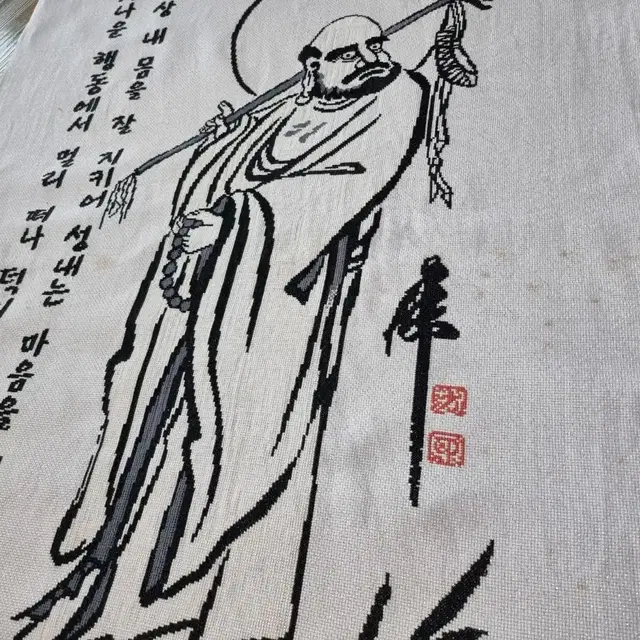 상 내 몸을 잘 지키어 성내는 마음을
나운 행동에서 멀리 떠나 덕